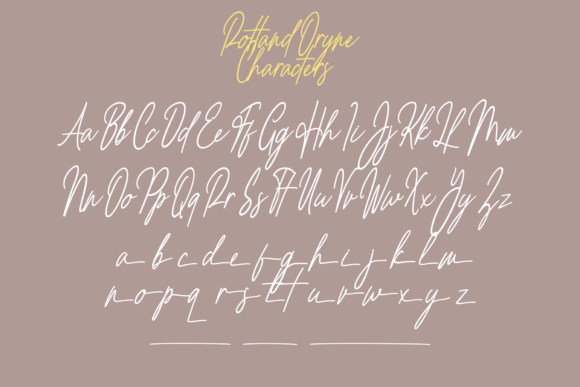 Rottand Oryne
Characters
Aa Bb Cc Dd Ee Ff Gg Hh Ii Jj Kk Ll Mm
Nn Oo Pp Qq Rr Ss Tt Uu Vv Ww Xx Yy Zz
a b c d e f g h i j k l m
n o p q r s t t u v w x y z